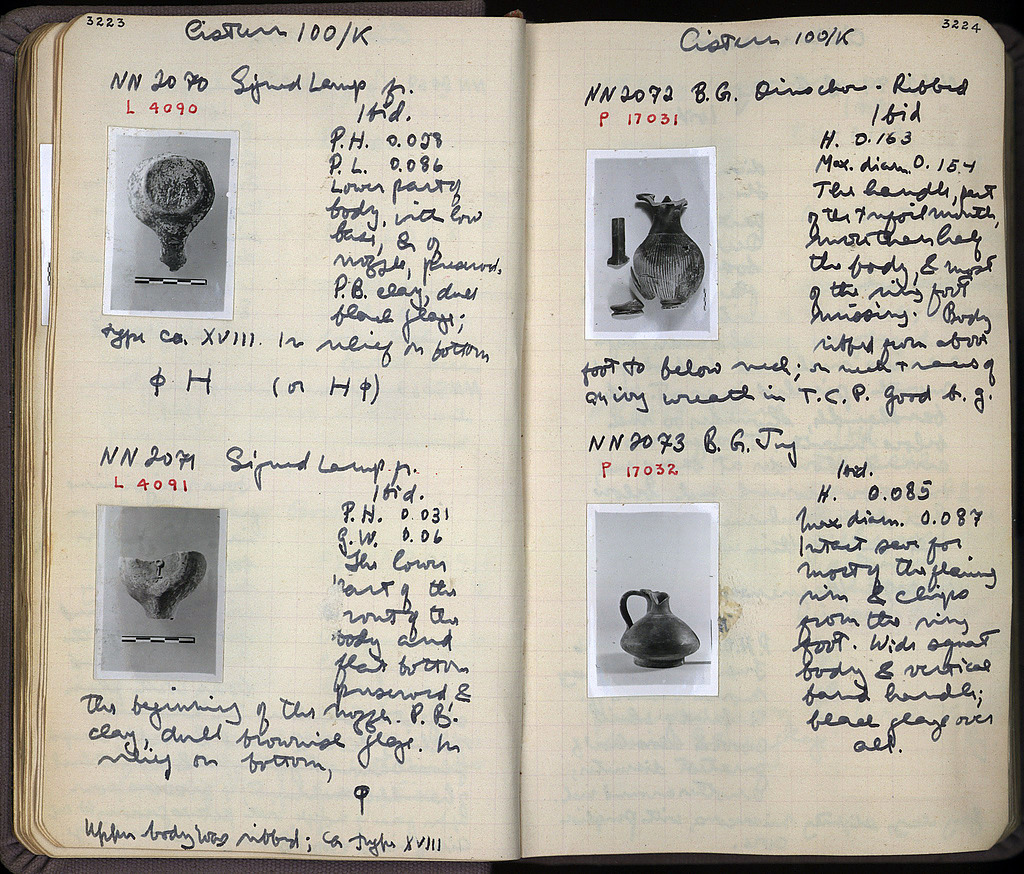 3223
Cistern 100/K
NN 2070 Signed Lamp fr.
L 4090
Ibid.
P.H. 0.028
P.L. 0.086
Lower part of
body, with low
base, & of
nozzle, preserved.
P.B. clay, dull
black glaze;
type ca. XVIII. In relief on bottom
φ H (or H φ)
NN 2071 Signed Lamp fr.
L 4091
Ibid.
P.H. 0.031
G.W. 0.06
The lower
part of the
front of the
body and
flat bottom
preserved &
the beginning of the nozzle. P.B.
clay, dull brownish glaze. In
relief on bottom,
φ
Upper body was ribbed; ca type XVIII
3224
Cistern 100/K
NN 2072 B.G. Oinochoe - Ribbed
P 17031
Ibid
H. 0.163
Max. diam. 0.154
The handle, part
of the trefoil mouth,
more than half
the body, & most
of the ring foot
missing. Body
ribbed from above
foot to below neck; on neck traces of
an ivy wreath in T.C.P. Good b.g.
NN 2073 B.G. Jug
P 17032
Ibid.
H. 0.085
max diam. 0.087
Intact save for
most of the flaring
rim & chips
from the ring
foot. Wide squat
body & vertical
band handle;
black glaze over
all.